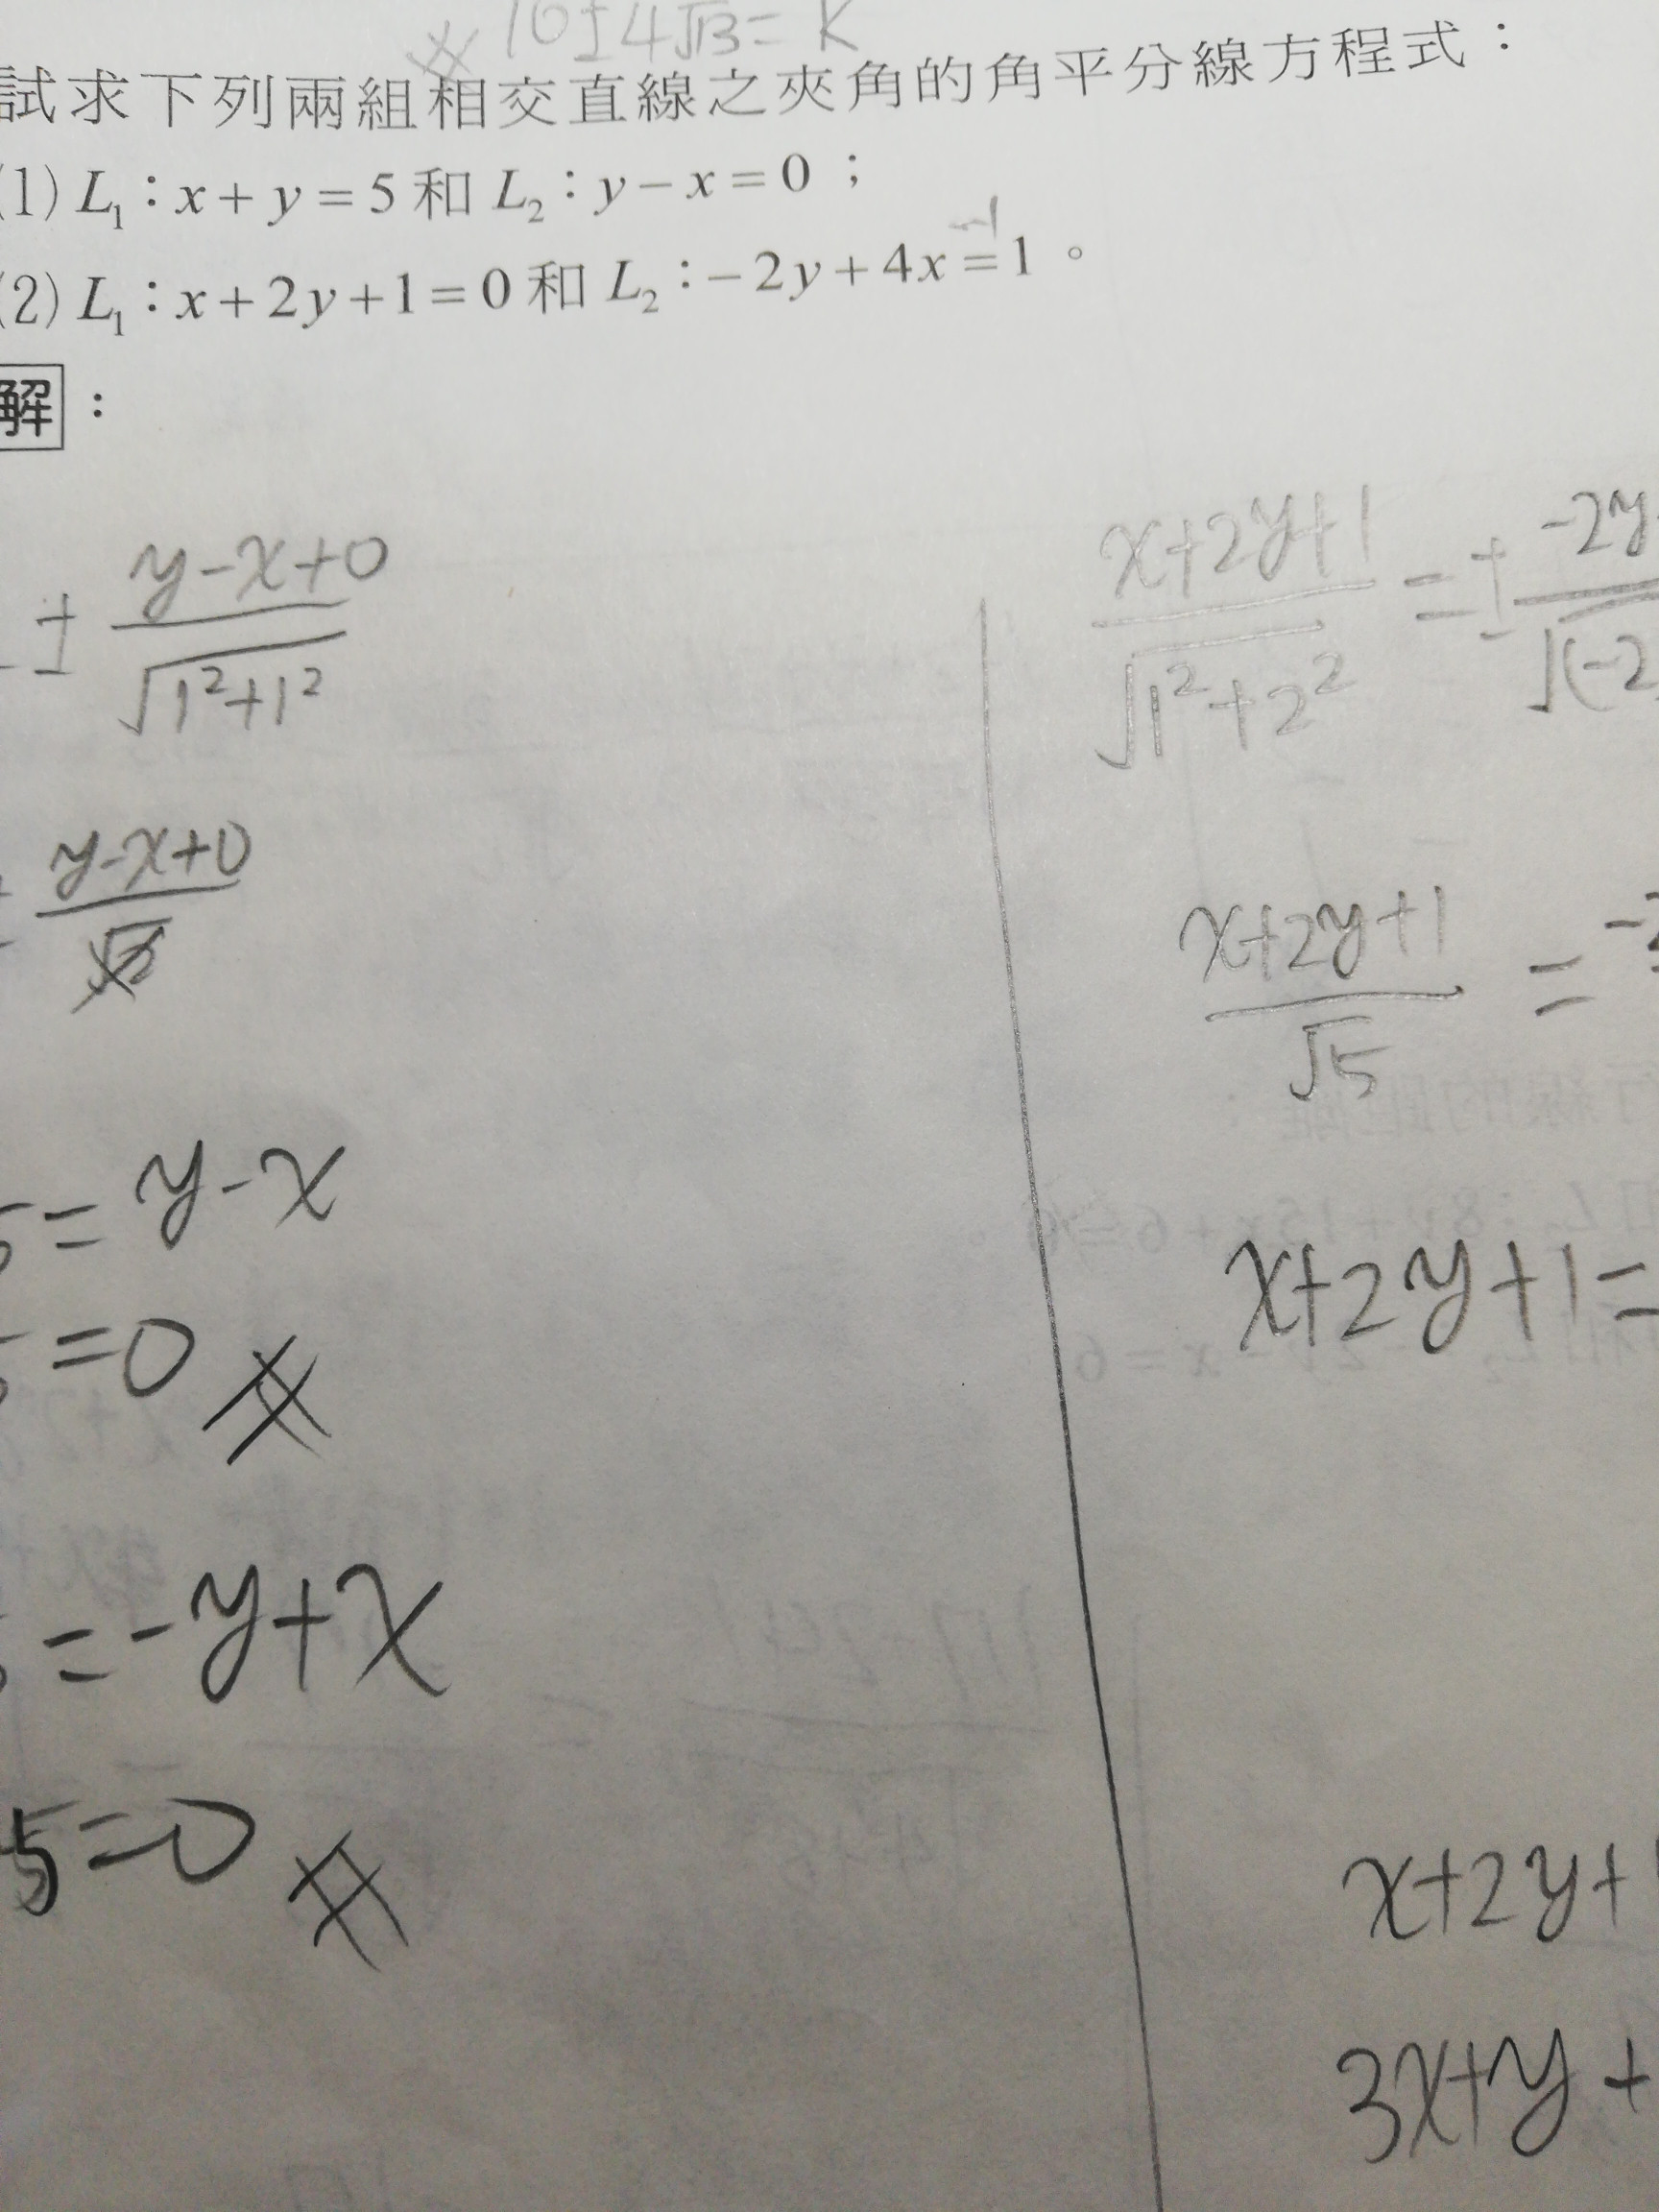 ※ 10±4√13=K
試求下列兩組相交直線之夾角的角平分線方程式：
(1) L₁：x+y=5 和 L₂：y−x=0；
-1
(2) L₁：x+2y+1=0 和 L₂：−2y+4x=1。
解：
± y-x+0
√1²+1²
y-x+0
√2
5=y-x
=0
=-y+x
5=0
x+2y+1 =± -2y
√1²+2² √(-2
x+2y+1 = -2
√5
x+2y+1=
x+2y+
3x+y+